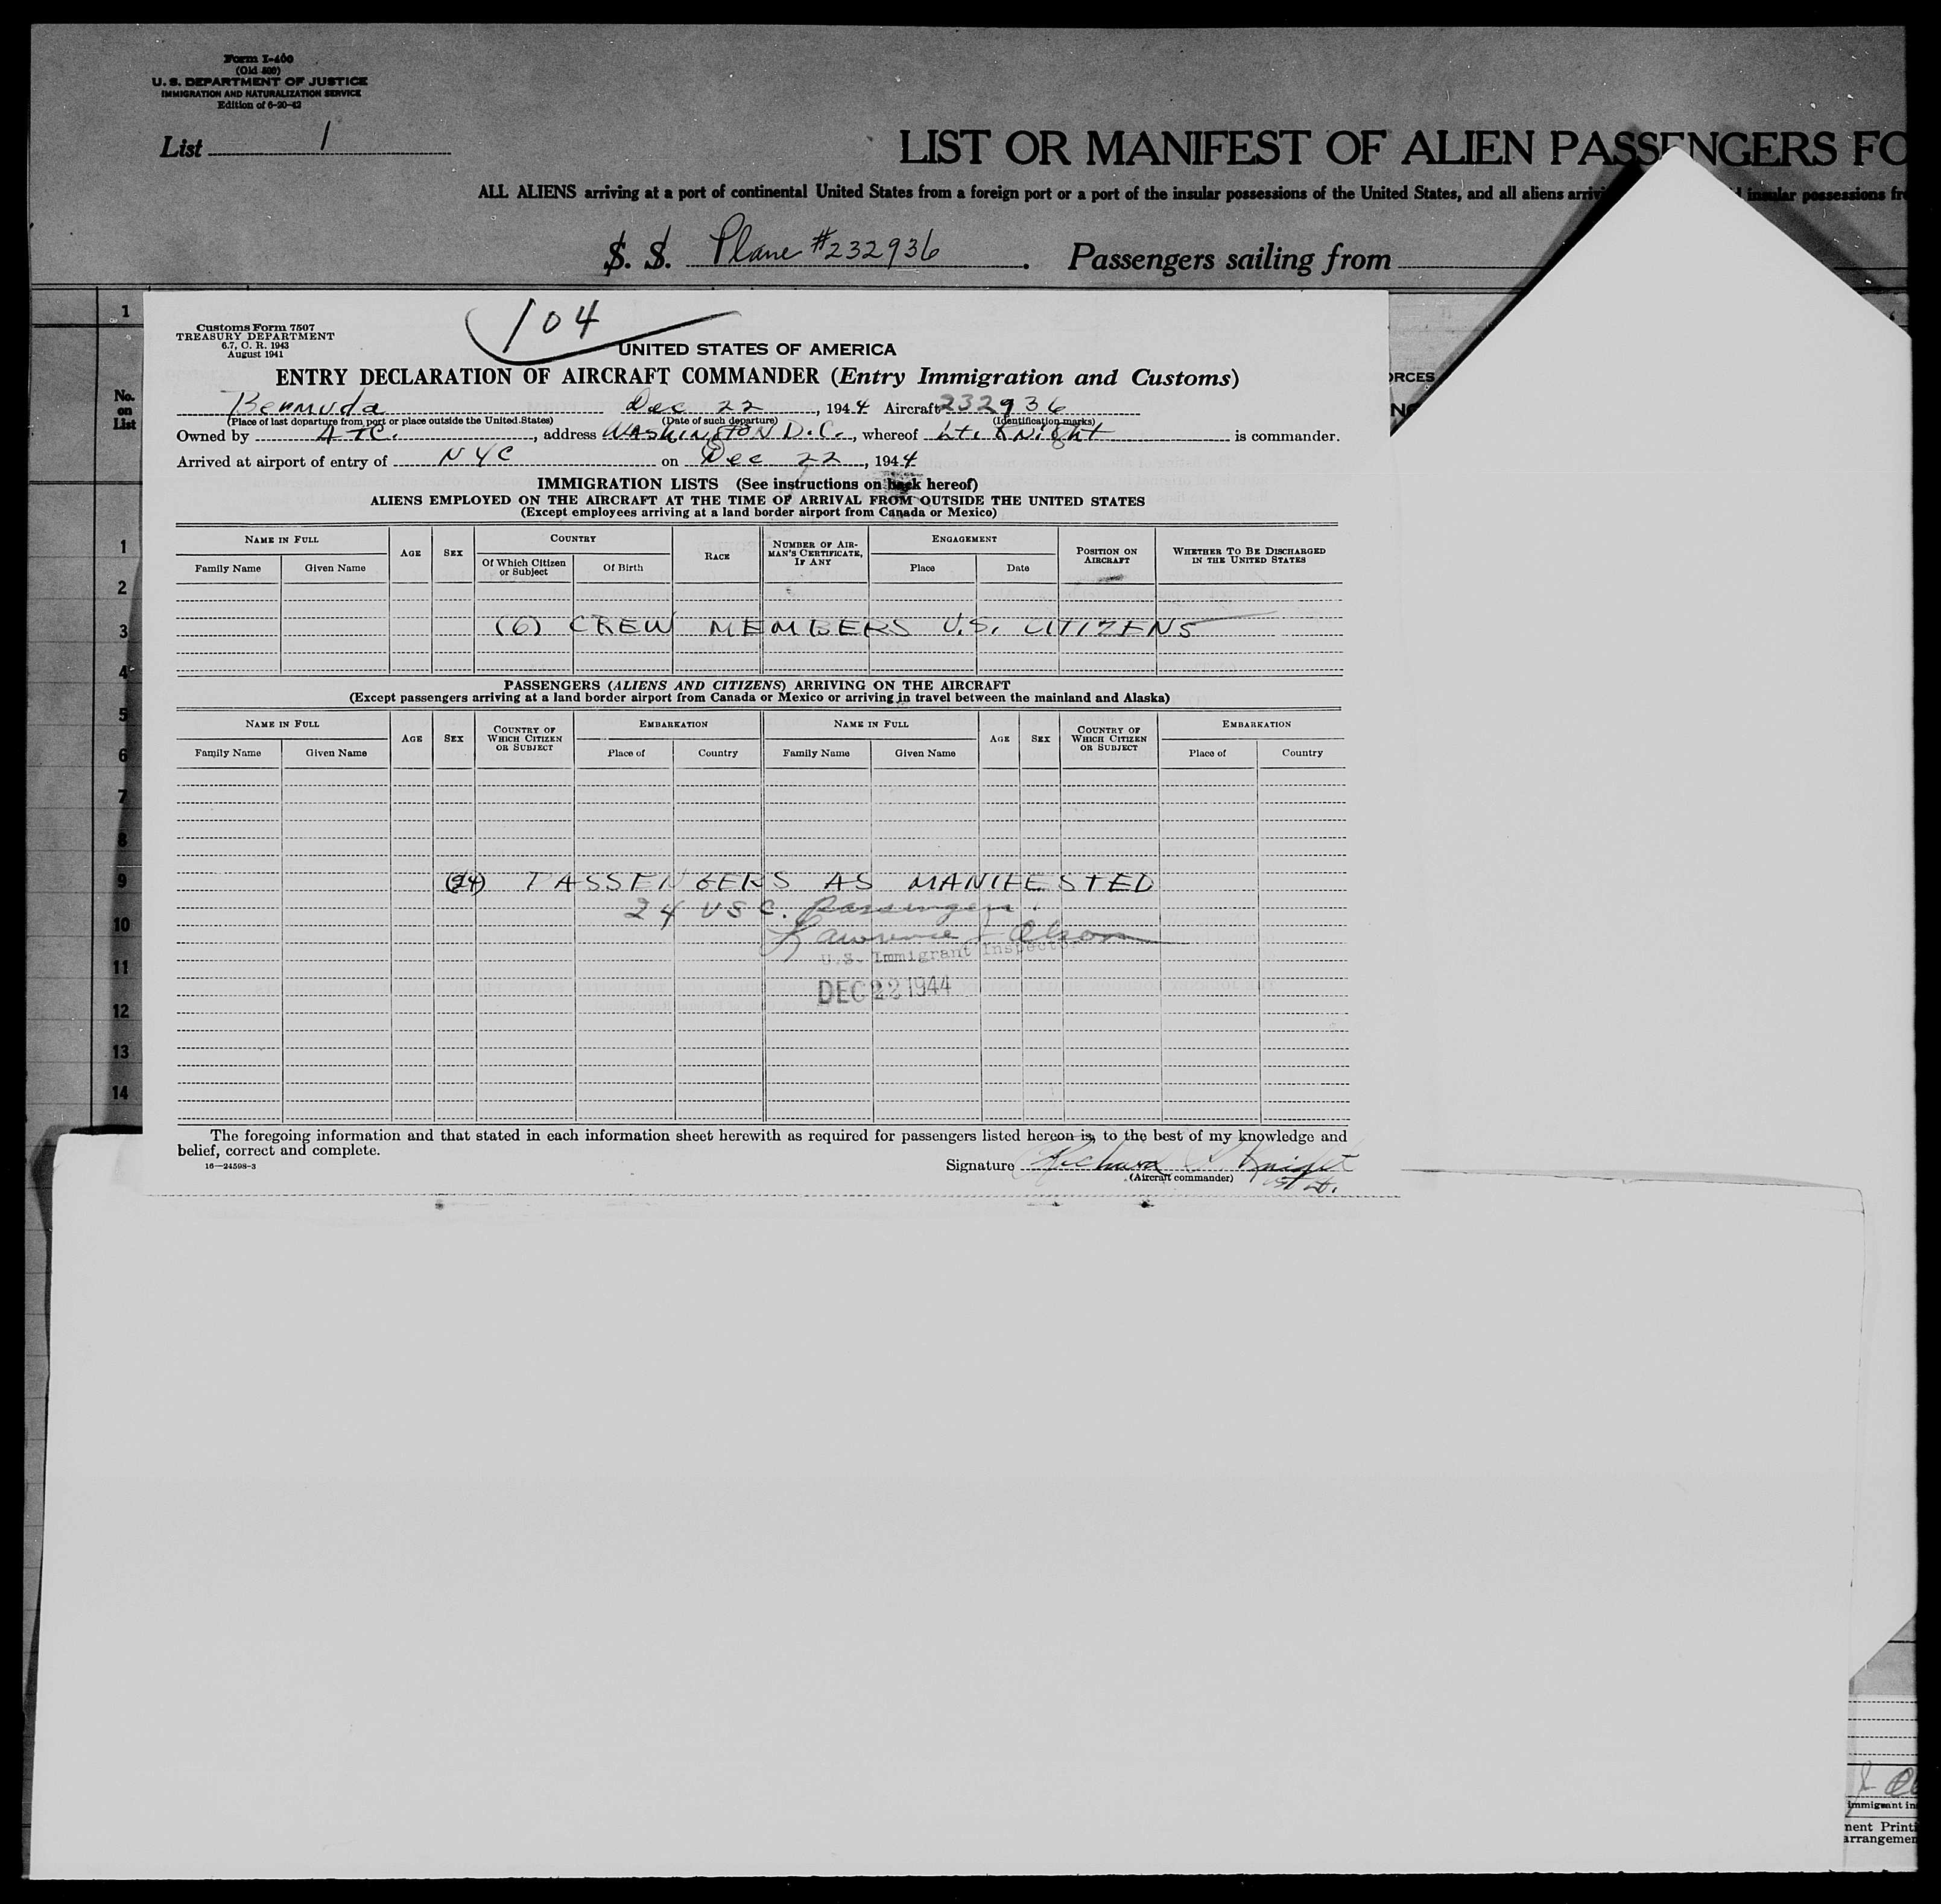 Form I-400
(Old 500)
U. S. DEPARTMENT OF JUSTICE
IMMIGRATION AND NATURALIZATION SERVICE
Edition of 6-20-42
List 1
LIST OR MANIFEST OF ALIEN PASSENGERS FO
ALL ALIENS arriving at a port of continental United States from a foreign port or a port of the insular possessions of the United States, and all aliens arrivi insular possessions fr
S. S. Plane #232936 . Passengers sailing from
1
No.
on
List
1
2
3
4
5
6
7
8
9
10
11
12
13
14
ORCES
104
Customs Form 7507
TREASURY DEPARTMENT
6.7, C. R. 1943
August 1941
UNITED STATES OF AMERICA
ENTRY DECLARATION OF AIRCRAFT COMMANDER (Entry Immigration and Customs)
Bermuda Dec 22, 1944 Aircraft 232936
(Place of last departure from port or place outside the United States) (Date of such departure) (Identification marks)
Owned by ATC., address WASHINGTON D.C., whereof Lt. Knight is commander.
Arrived at airport of entry of NYC on Dec 22, 1944
IMMIGRATION LISTS (See instructions on back hereof)
ALIENS EMPLOYED ON THE AIRCRAFT AT THE TIME OF ARRIVAL FROM OUTSIDE THE UNITED STATES
(Except employees arriving at a land border airport from Canada or Mexico)
NAME IN FULL AGE SEX COUNTRY RACE NUMBER OF AIRMAN'S CERTIFICATE, IF ANY ENGAGEMENT POSITION ON AIRCRAFT WHETHER TO BE DISCHARGED IN THE UNITED STATES
Family Name Given Name Of Which Citizen or Subject Of Birth Place Date
(6) CREW MEMBERS U.S. CITIZENS
PASSENGERS (ALIENS AND CITIZENS) ARRIVING ON THE AIRCRAFT
(Except passengers arriving at a land border airport from Canada or Mexico or arriving in travel between the mainland and Alaska)
NAME IN FULL AGE SEX COUNTRY OF WHICH CITIZEN OR SUBJECT EMBARKATION NAME IN FULL AGE SEX COUNTRY OF WHICH CITIZEN OR SUBJECT EMBARKATION
Family Name Given Name Place of Country Family Name Given Name Place of Country
(24) PASSENGERS AS MANIFESTED
24 USC. Passengers.
Lawrence J Olson
U.S. Immigrant Inspector
DEC 22 1944
The foregoing information and that stated in each information sheet herewith as required for passengers listed hereon is, to the best of my knowledge and
belief, correct and complete.
16—24598-3
Signature Richard Knight
(Aircraft commander) 1st Lt.
Immigrant in
ment Printi
arrangemen